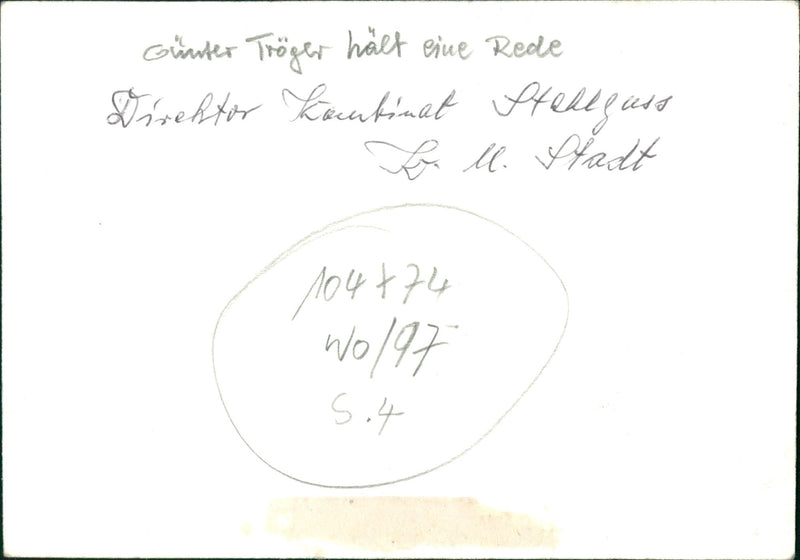 Günter Tröger hält eine Rede
Direktor Kombinat Stahlguss
K. M. Stadt
104 x 74
Wo/97
S. 4